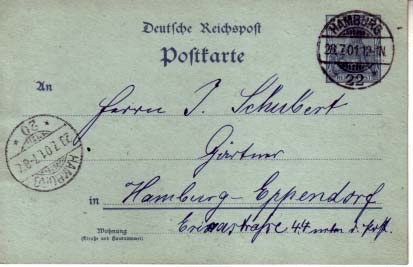 Deutsche Reichspost
Postkarte
HAMBURG
28.7.01.12-1N
22
An
Herrn J. Schubert
Gärtner
HAMBURG
20
in Hamburg-Eppendorf
Wohnung
(Straße und Hausnummer)
44